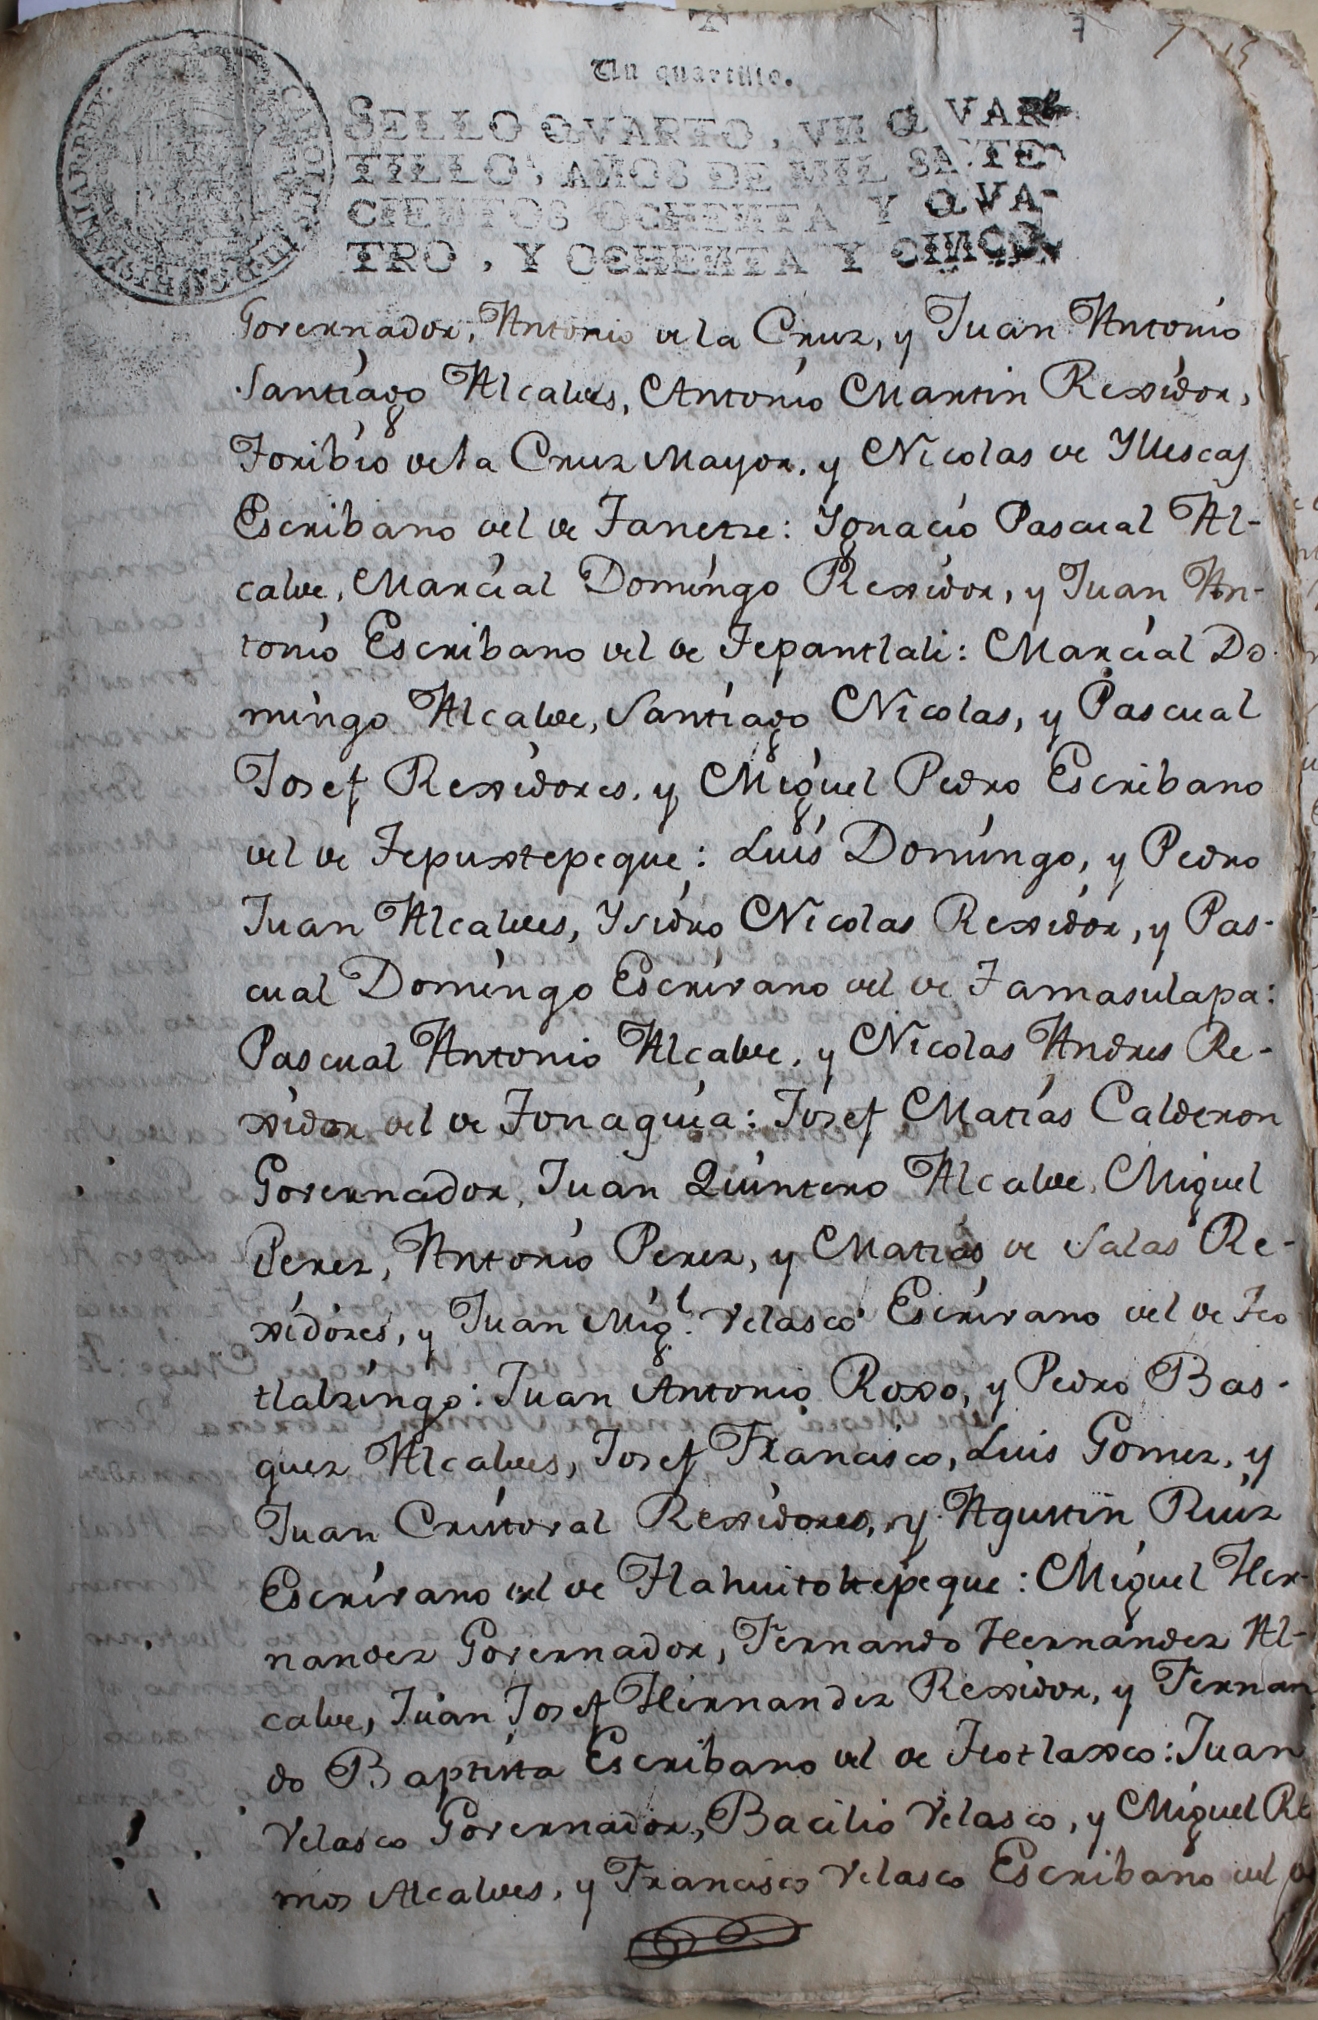 7 7 15
Un quartillo.
SELLO QVARTO, VN QVAR
TILLO, AÑOS DE MIL SETE
CIENTOS OCHENTA Y QVA-
TRO, Y OCHENTA Y CINCO.
Governador, Antonio de la Cruz, y Juan Antonio
Santiago Alcaldes, Antonio Martin Rexidor,
Toribio de la Cruz Mayor, y Nicolas de Yllescas
Escribano del de Tanetze: Ygnacio Pascual Al-
calde, Marcial Domingo Rexidor, y Juan An-
tonio Escribano del de Tepantlali: Marcial Do
mingo Alcalde, Santiago Nicolas, y Pascual
Josef Rexidores, y Miguel Pedro Escribano
del de Tepuxtepeque: Luis Domingo, y Pedro
Juan Alcaldes, Ysidro Nicolas Rexidor, y Pas-
cual Domingo Escrivano del de Tamasulapa:
Pascual Antonio Alcalde, y Nicolas Andres Re-
xidor del de Tonaguia: Josef Matias Calderon
Governador, Juan Quintero Alcalde, Miguel
Perez, Antonio Perez, y Matias de Salas Re-
xidores, y Juan Mig.l Velasco Escrivano del de Teo
tlalzingo: Juan Antonio Roxo, y Pedro Bas-
quez Alcaldes, Josef Francisco, Luis Gomez, y
Juan Cristoval Rexidores, y Agustin Ruiz
Escrivano del de Tlahuitoltepeque: Miguel Her-
nandez Governador, Fernando Hernandez Al-
calde, Juan Josef Hernandez Rexidor, y Fernan
do Baptista Escribano del de Teotlaxco: Juan
Velasco Governador, Bacilio Velasco, y Miguel Ra
mos Alcaldes, y Francisco Velasco Escribano del de